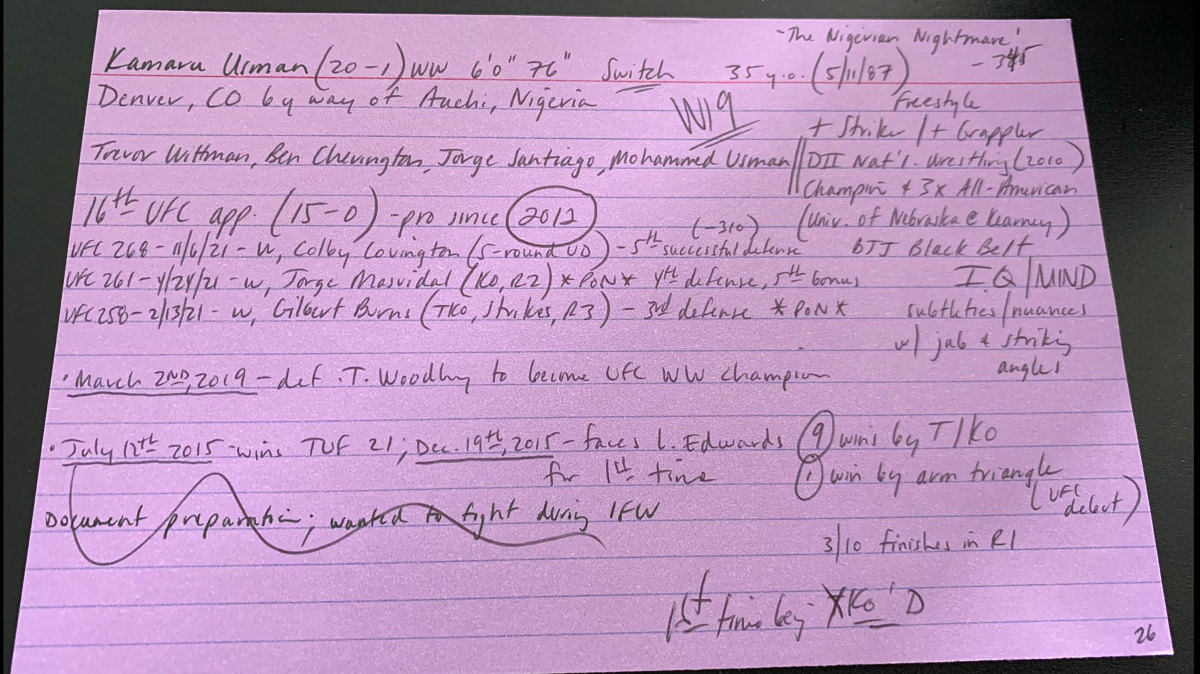 "The Nigerian Nightmare"
Kamaru Usman (20-1) WW 6'0" 76" Switch 35 y.o. (5/11/87) -345
Denver, CO by way of Auchi, Nigeria
W19
Freestyle
+ Striker / + Grappler
Trevor Wittman, Ben Cherington, Jorge Santiago, Mohammed Usman
DII Nat'l. Wrestling (2010)
Champion + 3x All-American
(Univ. of Nebraska @ Kearney)
BJJ Black Belt
16th UFC app. (15-0) - pro since 2012
(-310)
UFC 268 - 11/6/21 - W, Colby Covington (5-round UD) - 5th successful defense
UFC 261 - 4/24/21 - W, Jorge Masvidal (KO, R2) *PoN* 4th defense, 5th bonus
UFC 258 - 2/13/21 - W, Gilbert Burns (TKO, Strikes, R3) - 3rd defense *PoN*
IQ/MIND
subtleties/nuances
w/ jab & striking
angles
· March 2ND, 2019 - def. T. Woodley to become UFC WW champion
· July 12th 2015 - wins TUF 21; Dec. 19th, 2015 - faces L. Edwards
for 1st time
9 wins by T/KO
1 win by arm triangle
(UFC debut)
Document preparation; wanted to fight during IFW
3/10 finishes in R1
1st time being KO'D
26